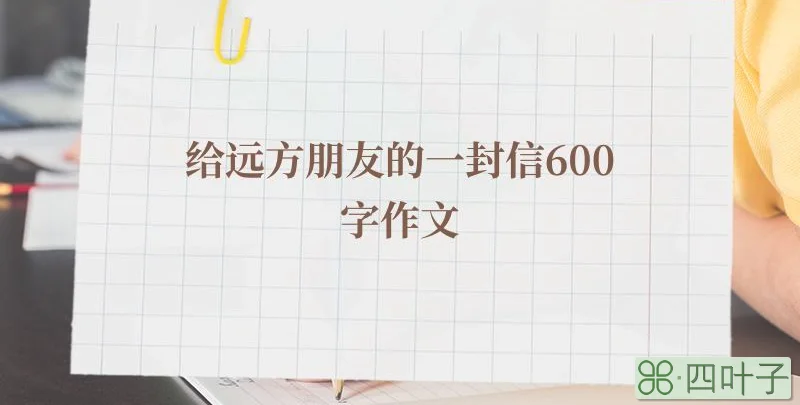 给远方朋友的一封信600
字作文
四叶子